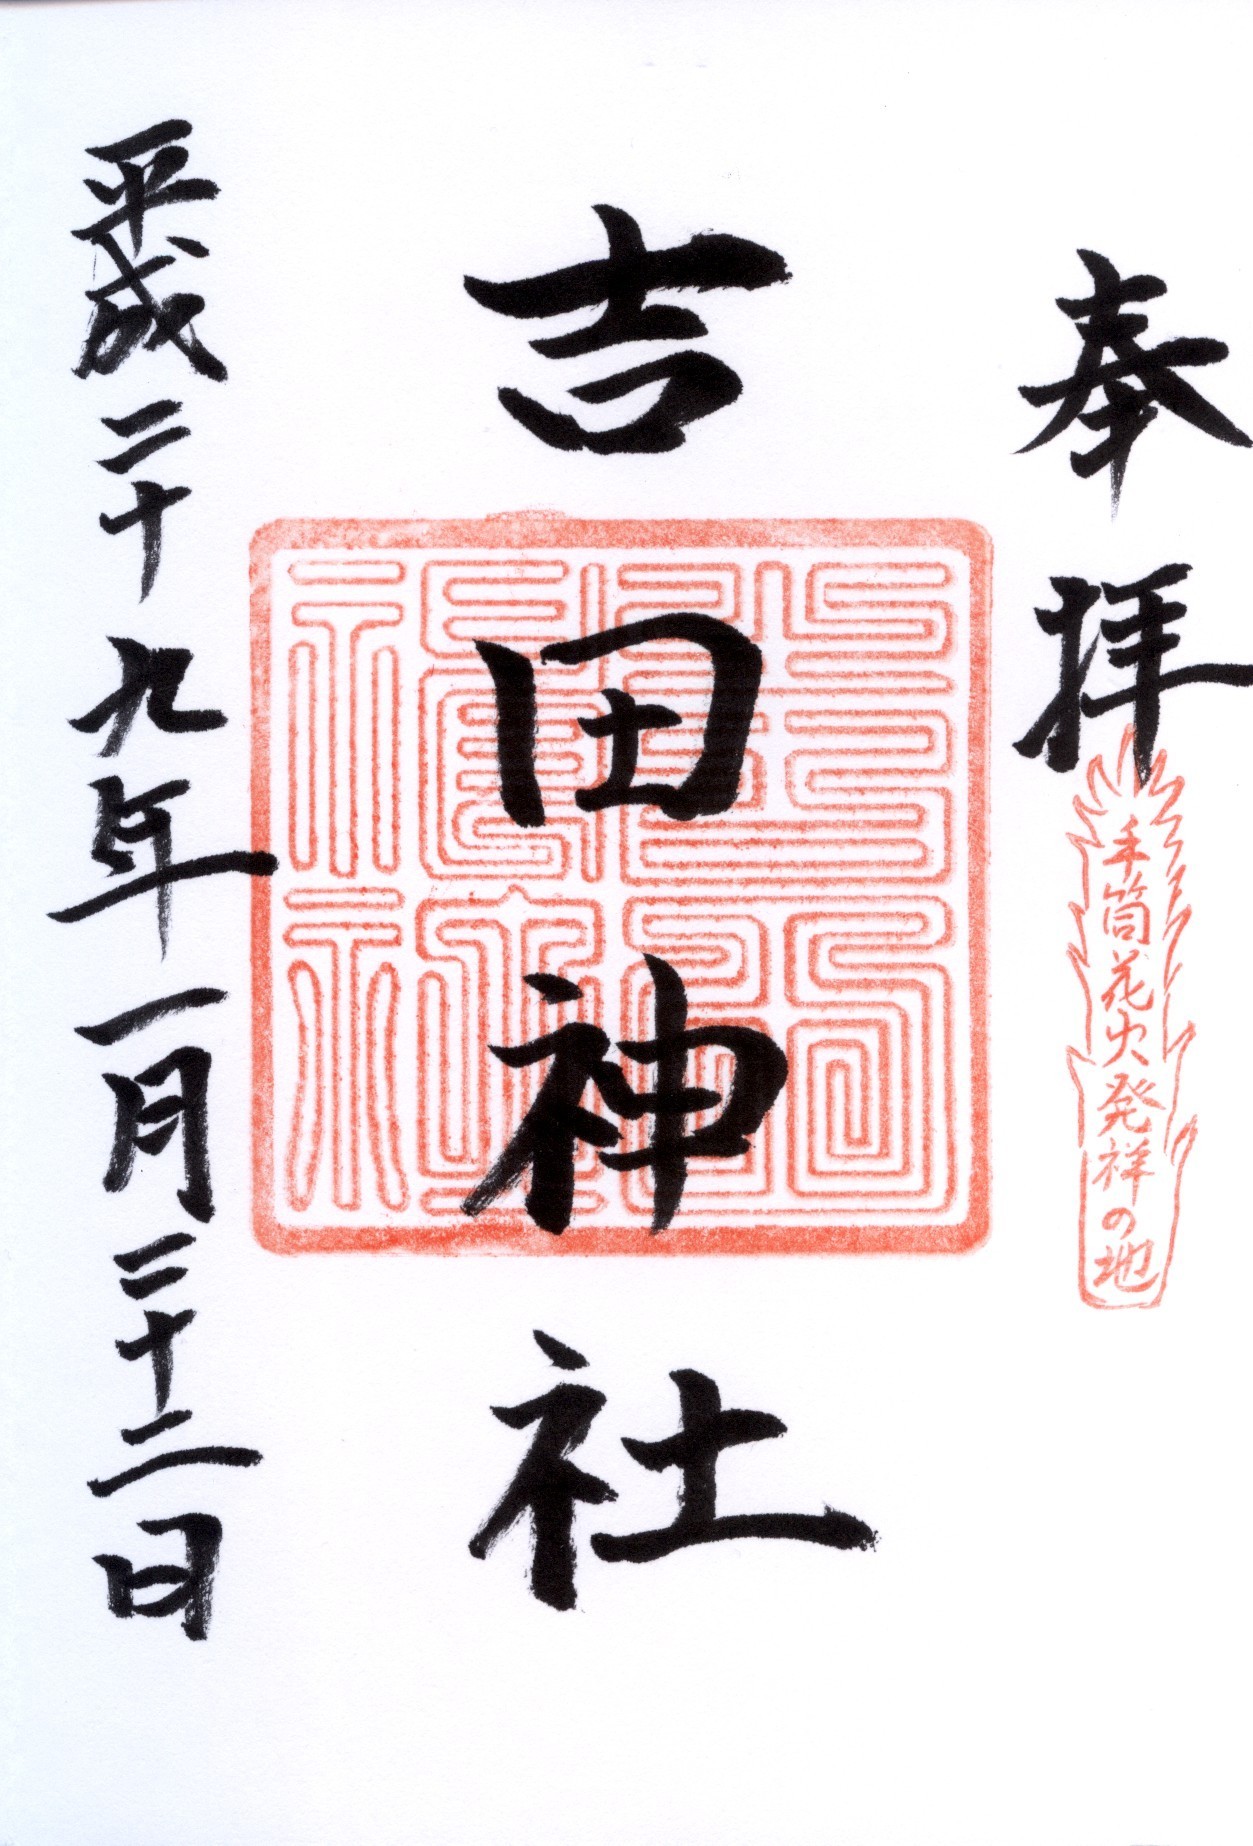 奉拝
手筒花火発祥の地
吉田神社
平成二十九年一月二十二日